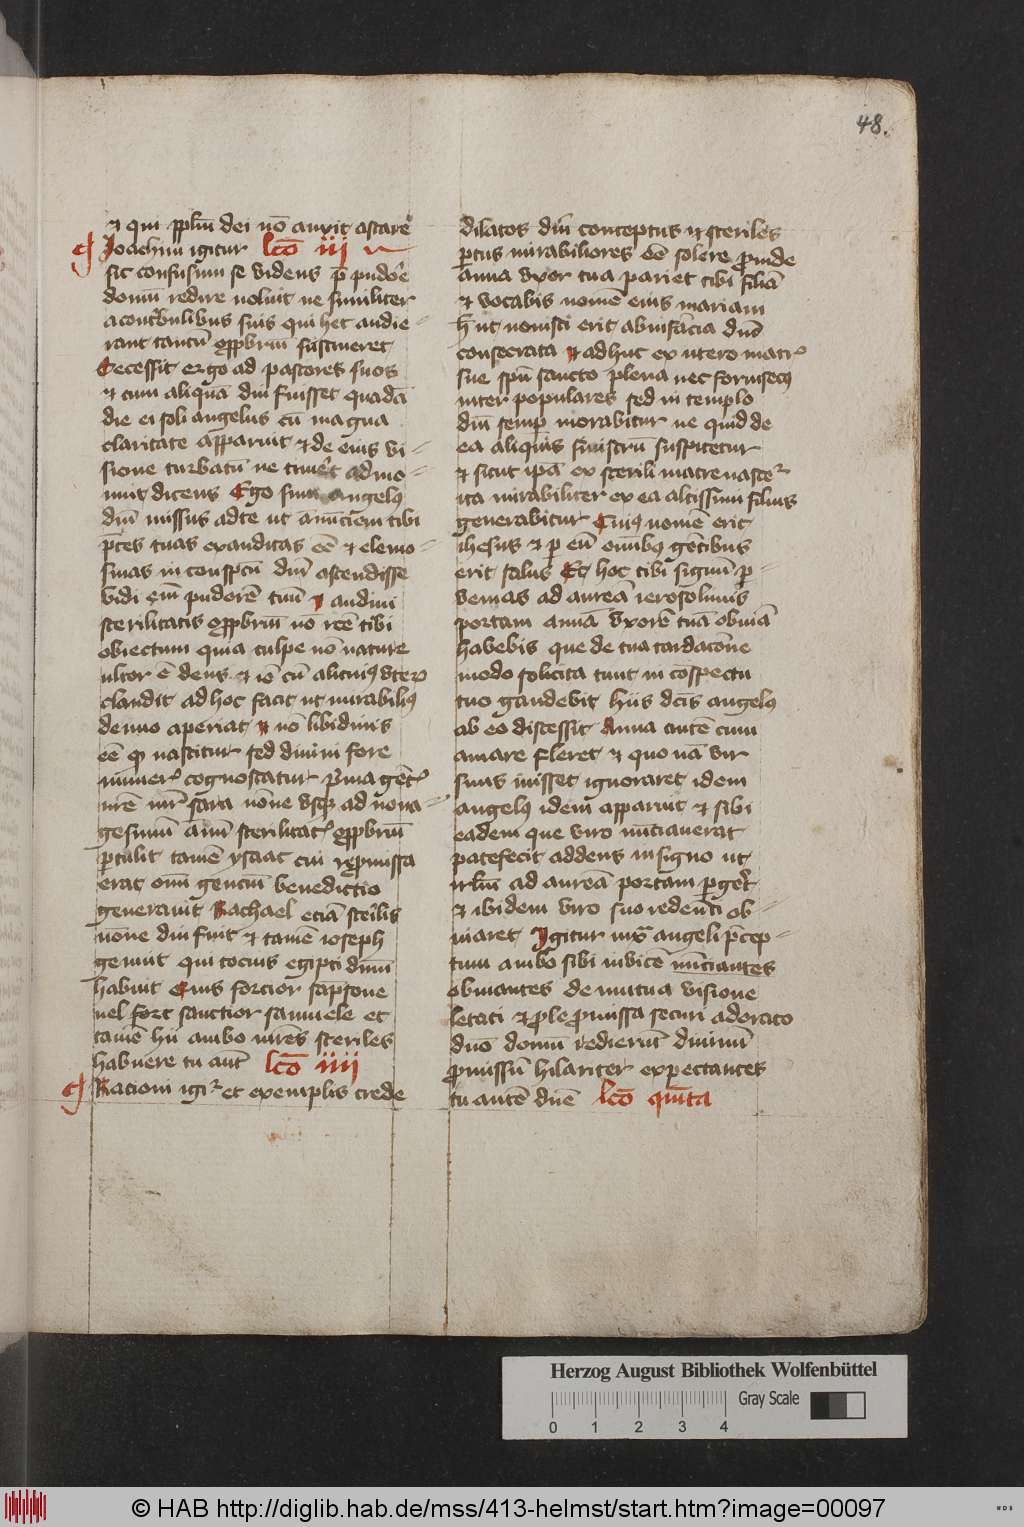 48.
⁊ qui pplm̄ dei nō auxit astare
Joachim igitur lcō iii
sic confusum se videns p̄ pudōe
domū redire noluit ne similiter
a contribulibus suis qui hec audie
rant tantū opprbriū sustineret
Secessit ergo ad pastores suos
⁊ cum aliquā diu fuisset quadā
die ei soli angelus cū magna
claritate apparuit ⁊ de eius vi
sione turbatū ne timet admo
nuit dicens Ego sum angelꝰ
dnī missus ad te ut annūciem tibi
p̄ces tuas exauditas eē ⁊ elemo
sinas in conspcū dnī ascendisse
vidi em̄ pudorē tuū ⁊ audiui
sterilitatis opprbriū nō rcē tibi
obiectum quia culpe nō nature
ultor ē deus ⁊ iō cū alicuiꝰ uterū
claudit ad hoc facit ut mirabiliꝰ
denuo aperiat ⁊ nō libidinis
eē qd nascitur sed diuini fore
muneris cognoscatur Prima gētis
nrē mr̄ sara nōne usqꝫ ad nona
gesimū annū sterilitatis opprbriū
ptulit tamē ysaac cui repromissa
erat omī genciū benedictio
generauit Rachael eciā sterilis
nōne diu fuit ⁊ tamē ioseph
genuit qui tocius egipti dnīū
habuit Quis forcior sampsone
uel forc sanctior samuele et
tamē hii ambo mrēs steriles
habuere tu aut lcō iiii
Racioni igir et exemplis crede
dilatos diu conceptus ⁊ steriles
partus mirabiliores eē solere proinde
anna uxor tua pariet tibi filiā
⁊ vocabis nomē eius mariam
hec ut nouisti erit ab infācia dnō
consecrata ⁊ adhuc ex utero matris
sue spū sancto plena nec forinsecꝰ
inter populares sed in templo
dnī semp morabitur ne quid de
ea aliquis sinistrū suspicetur
⁊ sicut ipā ex sterili matre nascetur
ita mirabiliter ex ea altissimi filius
generabitur Cuiꝰ nomē erit
ihesus ⁊ p eū omībꝰ gētibus
erit salus Et hoc tibi signū p
venias ad aureā ierosolimis
portam annā uxorē tuā obuiā
habebis que de tua tardacōne
modo solicita tunc in cōspectu
tuo gaudebit Hiis dcīs angelꝰ
ab eo discessit Anna autē cum
amare fleret ⁊ quo nā vir
suus iuisset ignoraret idem
angelꝰ idem apparuit ⁊ sibi
eadem que viro nūciauerat
patefecit addens in signo ut
irlm̄ ad aureā portam pget
⁊ ibidem viro suo redeūti ob
uiaret Igitur iuxta angeli p̄cep
tum ambo sibi inuicē nūciantes
obuiantes de mutua visione
letati ⁊ prole promissa securi adorato
dnō domū redierūt diuinū
promissū hilariter expectantes
tu autē dnē lcō quīta
Herzog August Bibliothek Wolfenbüttel
Gray Scale
0 1 2 3 4
© HAB http://diglib.hab.de/mss/413-helmst/start.htm?image=00097
WDB